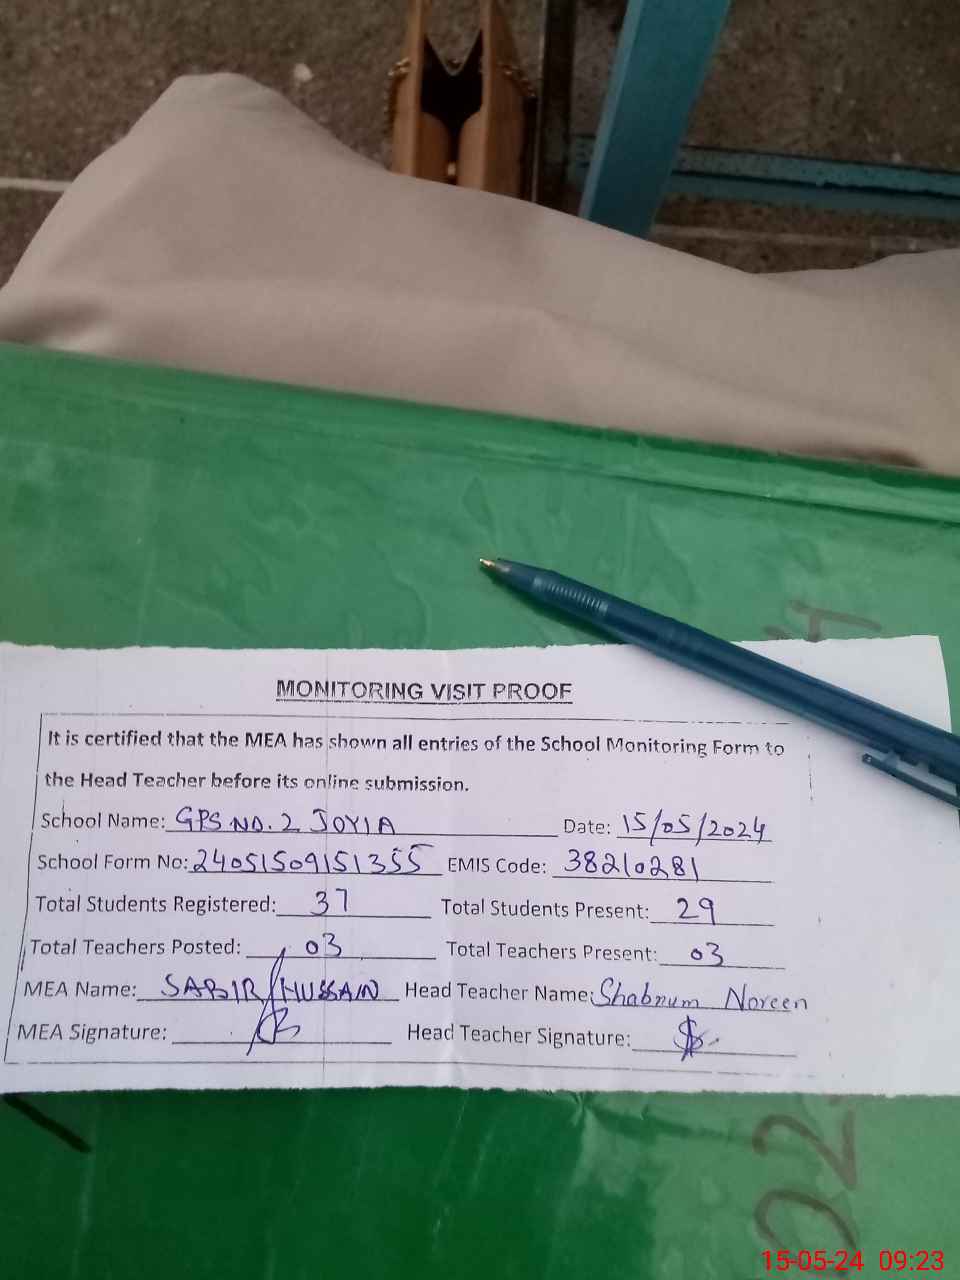 MONITORING VISIT PROOF
It is certified that the MEA has shown all entries of the School Monitoring Form to
the Head Teacher before its online submission.
School Name: GPS NO. 2 JOYIA Date: 15/05/2024
School Form No: 24051509151355 EMIS Code: 38210281
Total Students Registered: 37 Total Students Present: 29
Total Teachers Posted: 03 Total Teachers Present: 03
MEA Name: SABIR HUSSAIN Head Teacher Name: Shabnum Noreen
MEA Signature: Head Teacher Signature:
15-05-24 09:23